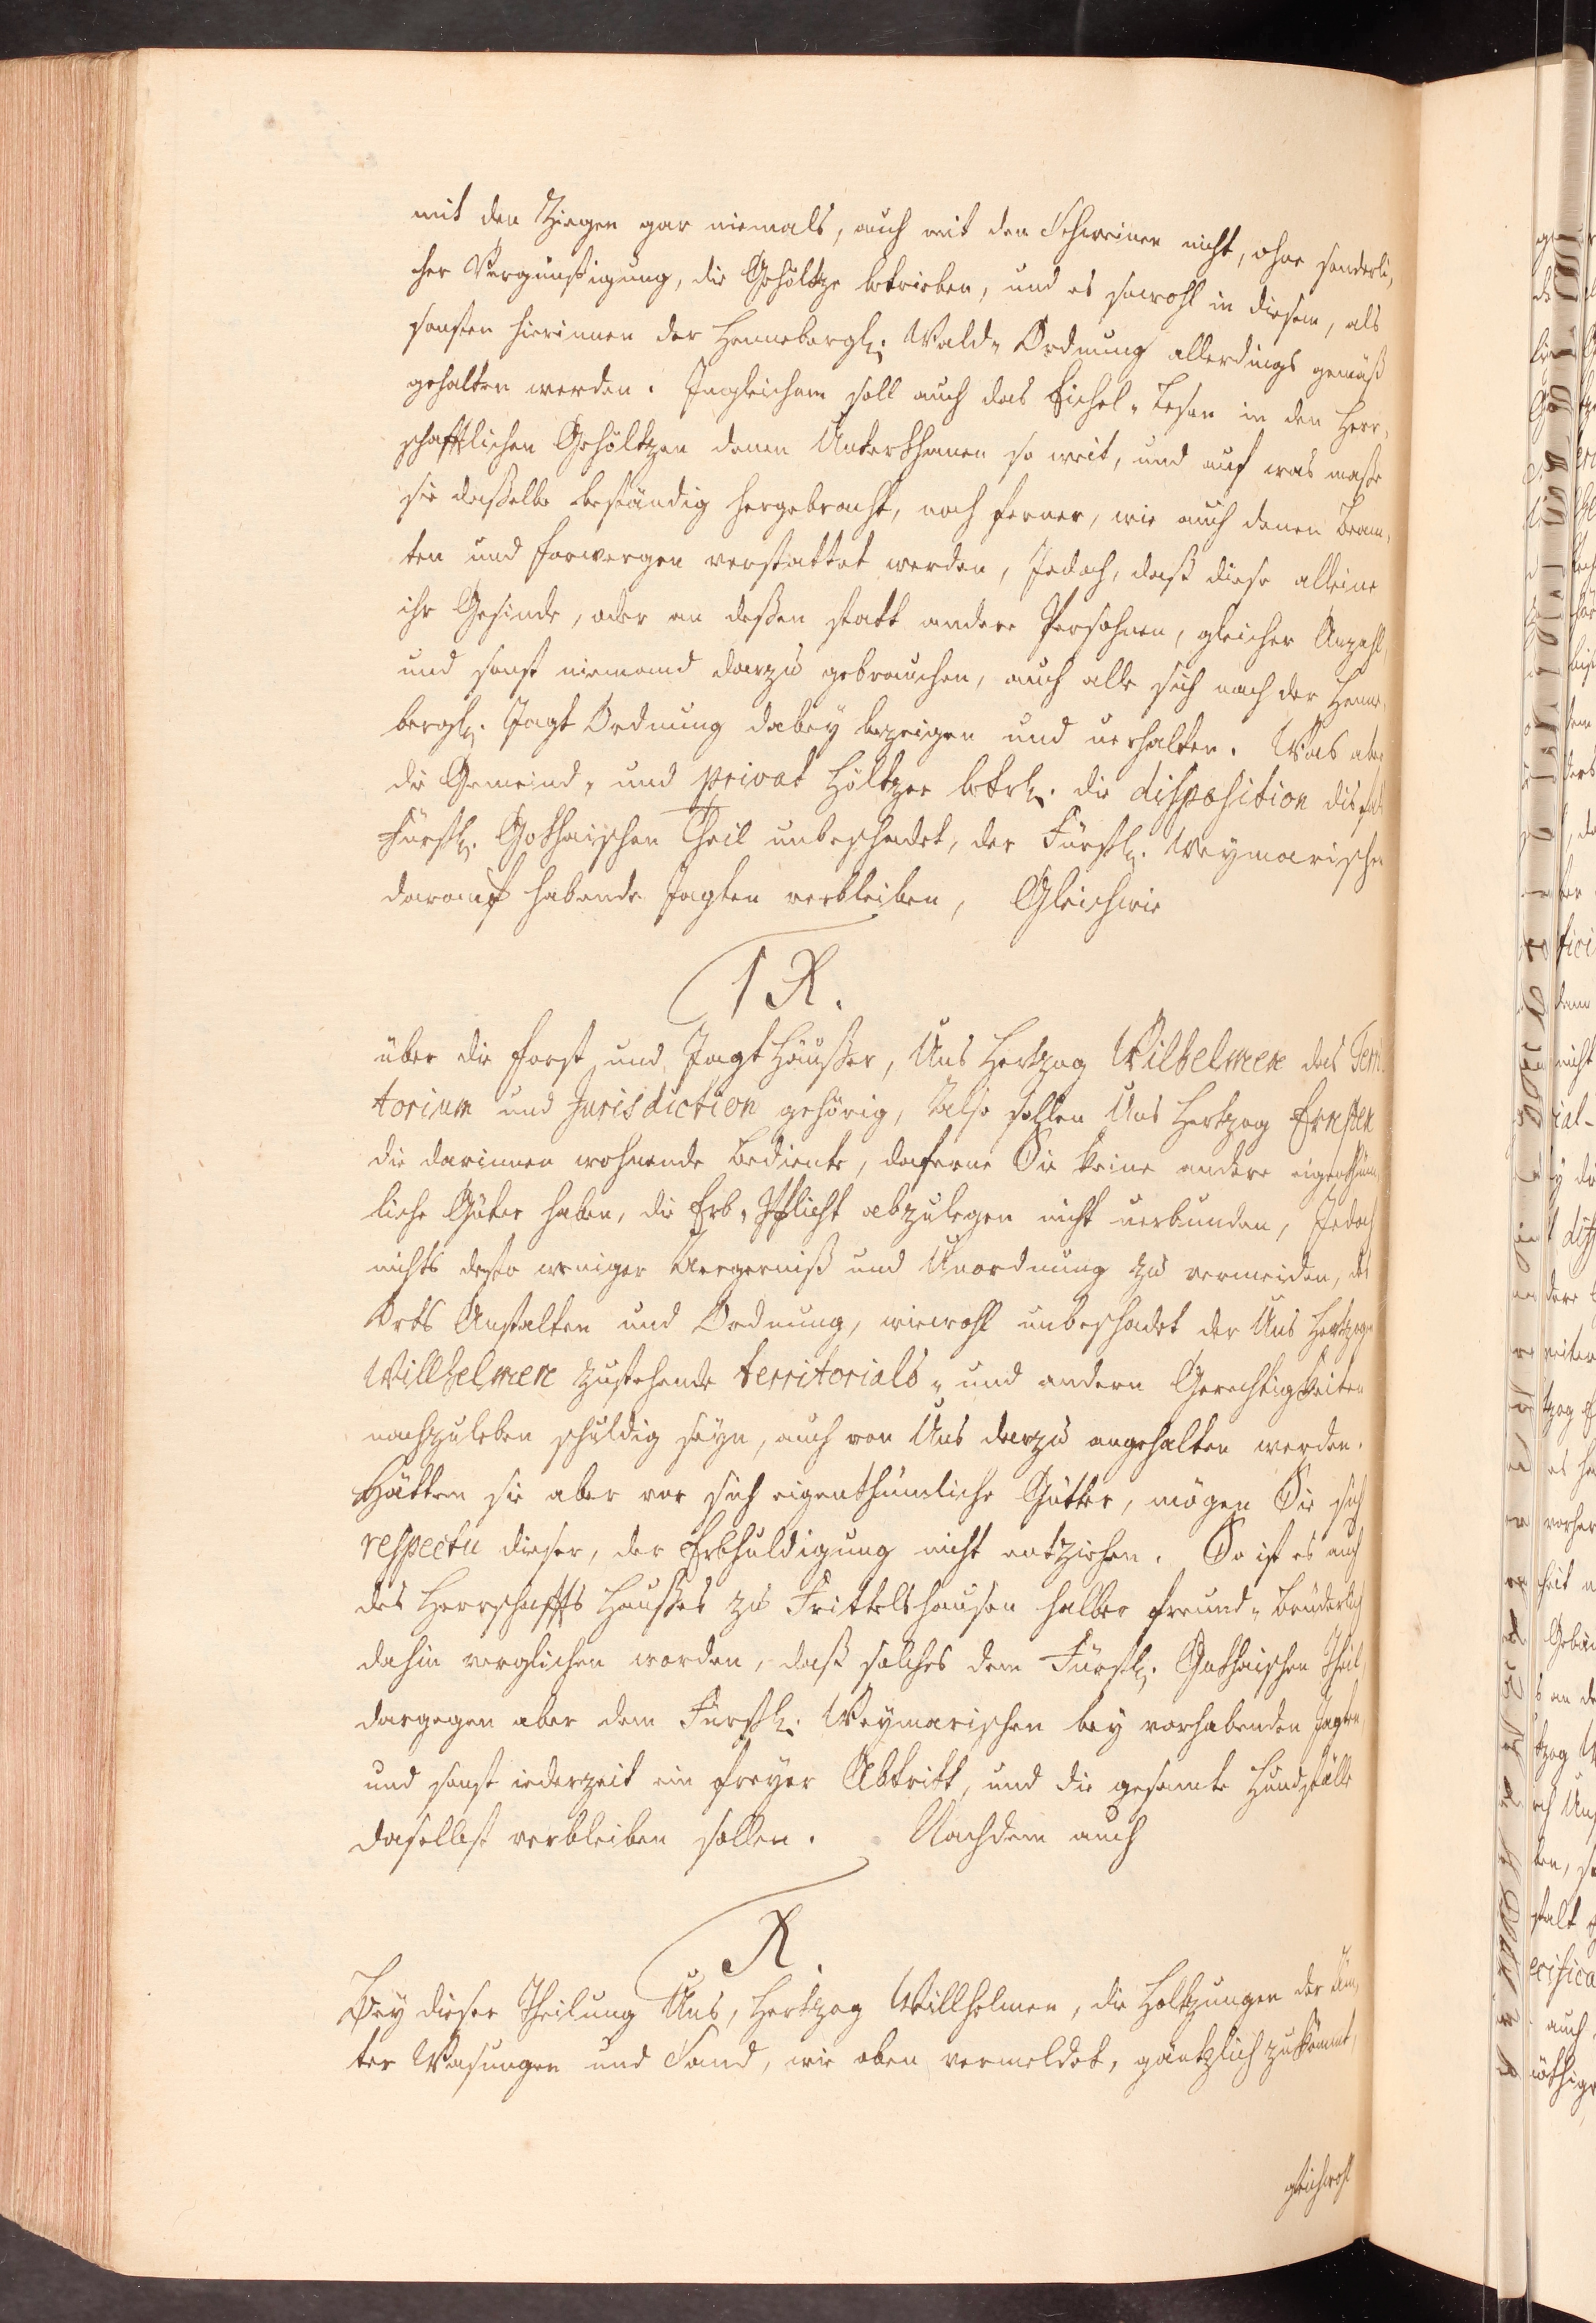 mit den Ziegen gar niemals, auch mit den Schweinen nicht, ohne sonderli,
cher Vergünstigung, die Gehöltze betrieben, und es sowohl in diesem, als
sonsten hierinnen der Hennebergl. Wald- Ordnung allerdings gemäß
gehalten werden. Ingleichem soll auch das Eichel- Lesen in den Herr,
schafftlichen Gehöltzen denen Unterthanen so weit, und auf was maße
sie daßelbe beständig hergebracht, noch ferner, wie auch denen Beam,
ten und forwergen verstattet werden, Jedoch, daß diese alleine
ihr Gesinde, oder an deßen statt andere Persohnen, gleicher Anzahl,
und sonst niemand darzu gebrauchen, auch alle sich nach der Henne,
bergl. Jagt Ordnung dabey bezeigen und verhalten. Was aber
die Gemeind- und privat Höltzer betrl. die disposition disfals
Fürstl. Gothaischen Theil unbeschadet, der Fürstl. Weymarischen
darauf habende Jagten verbleiben, Gleichwie
IX.
über die forst und Jagt Häußer, Uns Hertzog Wilhelmen das Terri
torium und Jurisdiction gehörig, Also sollen Uns Hertzog Ernsten
die darinnen wohnende Bediente, daferne Sie keine andere eigenthüm,
liche Güter haben, die Erb- Pflicht abzulegen nicht verbunden, Jedoch
nichts desto weniger Aergerniß und Unordnung zu vermeiden, des
Orts Anstalten und Ordnung, wiewohl unbeschadet der Uns Hertzogen
Willhelmen zustehende territorials- und andern Gerechtigkeiten
nachzuleben schuldig seyn, auch von Uns darzu angehalten werden.
Hätten sie aber vor sich eigenthümliche Gütter, mögen Sie sich
respectu dieser, der Erbhuldigung nicht entziehen. So ist es auch
des Herrschaffts Haußes zu Frittelshausen halber freund- Brüderlich
dahin verglichen worden, daß solches dem Fürstl. Gothaischen Theil,
dargegen aber dem Fürstl. Weymarischen bey vorhabenden Jagten,
und sonst iederzeit ein freyer Abtritt, und die gesamte Hundställe
daselbst verbleiben sollen. Nachdem auch
X.
Bey dieser Theilung Uns, Hertzog Willhelmen, die Holtzungen der Äm,
ter Wasungen und Sand, wie oben vermeldet, gäntzlich zukömmt,
gleichwohl